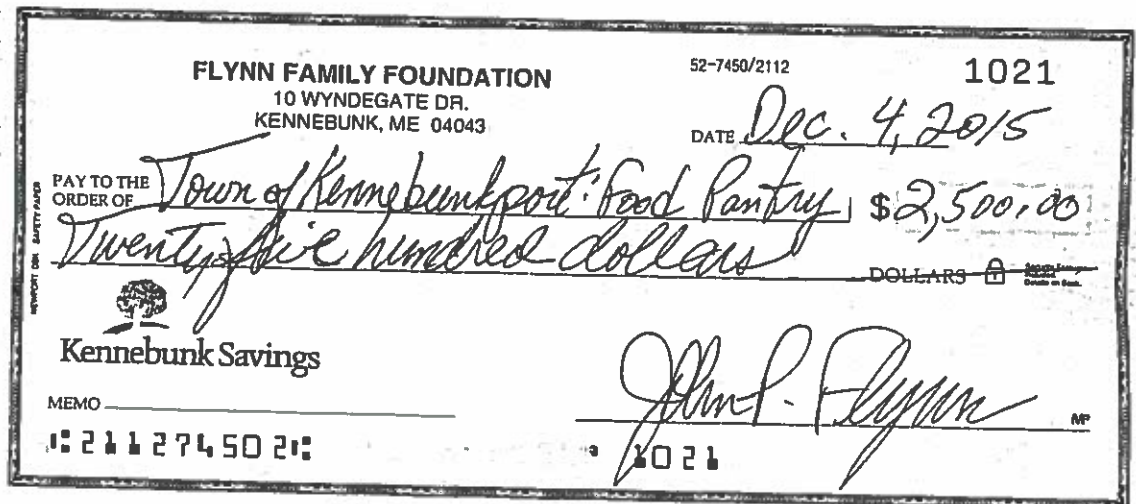 FLYNN FAMILY FOUNDATION
10 WYNDEGATE DR.
KENNEBUNK, ME 04043
52-7450/2112
1021
DATE Dec. 4, 2015
PAY TO THE ORDER OF Town of Kennebunkport: Food Pantry $ 2,500.00
Twenty five hundred dollars DOLLARS
NEWPORT DSN SAFETY PAPER
Kennebunk Savings
John P. Flynn
MP
MEMO
⑆211274502⑆ 1021